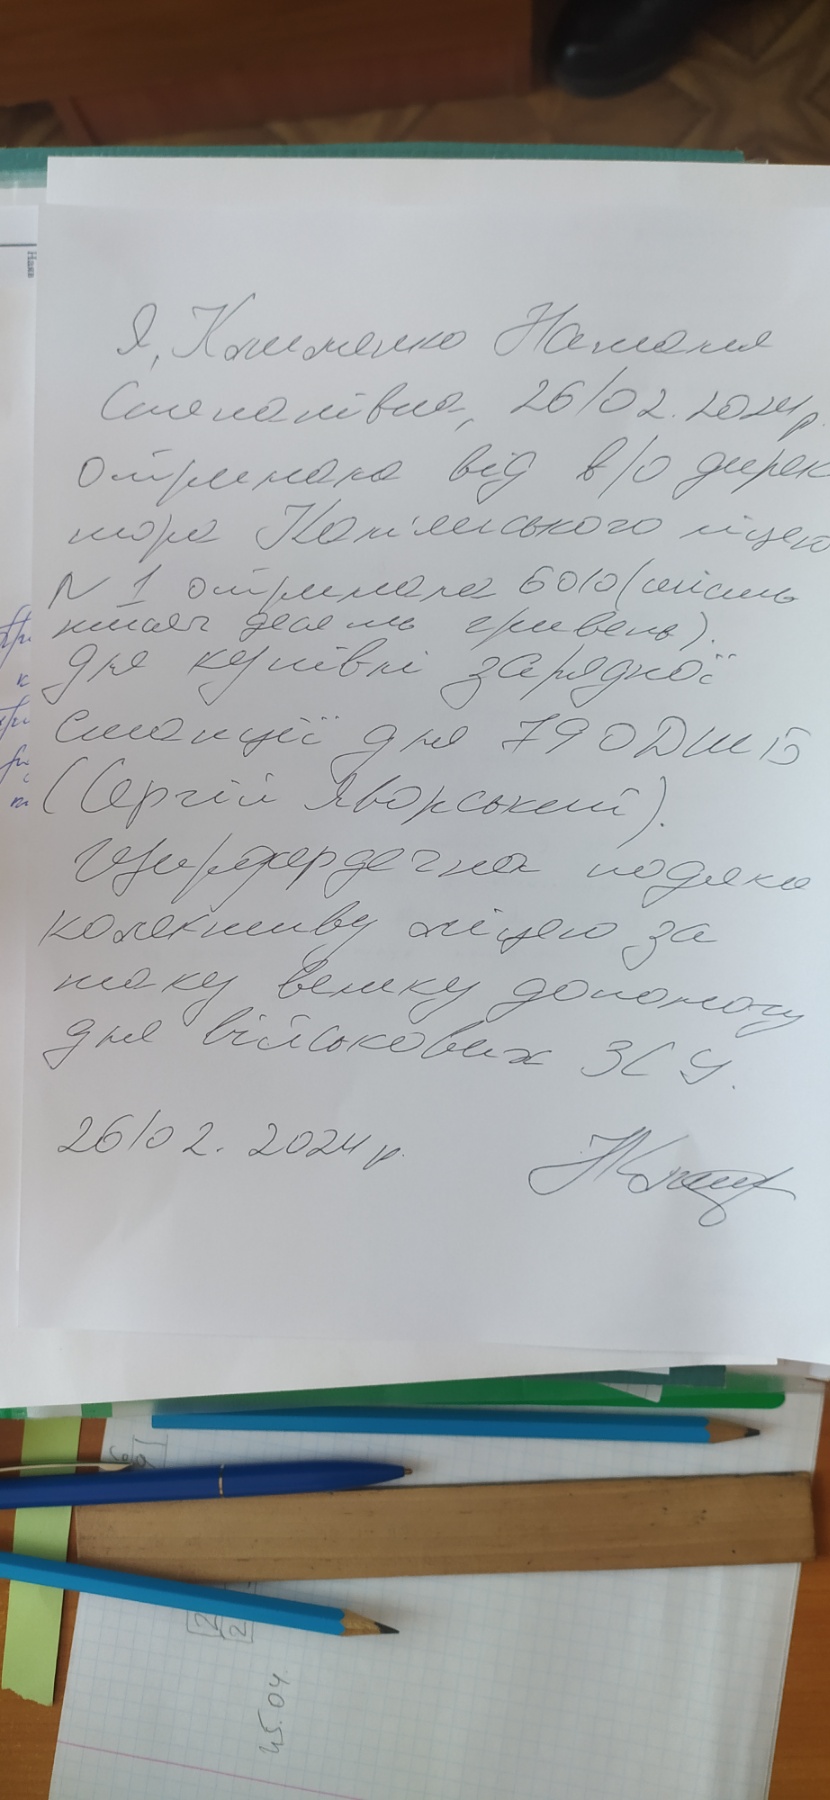 Я, Клименко Наталія
Степанівна, 26/02.2024 р.
отримала від в/о дирек
тора Кап'ямського ліцею
N 1 отримала 6010 (шість
тисяч десять гривень).
для купівлі зарядної
станції для 79 ОДШБ
(Сергій Яворський).
Щиросердечна подяка
колективу ліцею за
таку велику допомогу
для військових ЗСУ.
26/02. 2024 р.
45.04